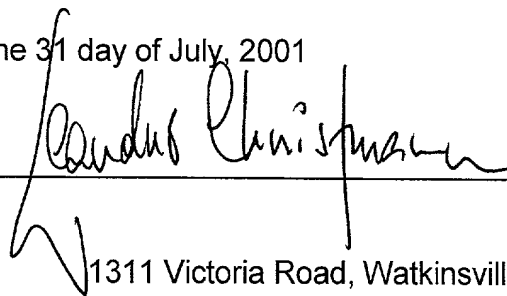 he 31 day of July, 2001
Leandro Christmann
1311 Victoria Road, Watkinsvill